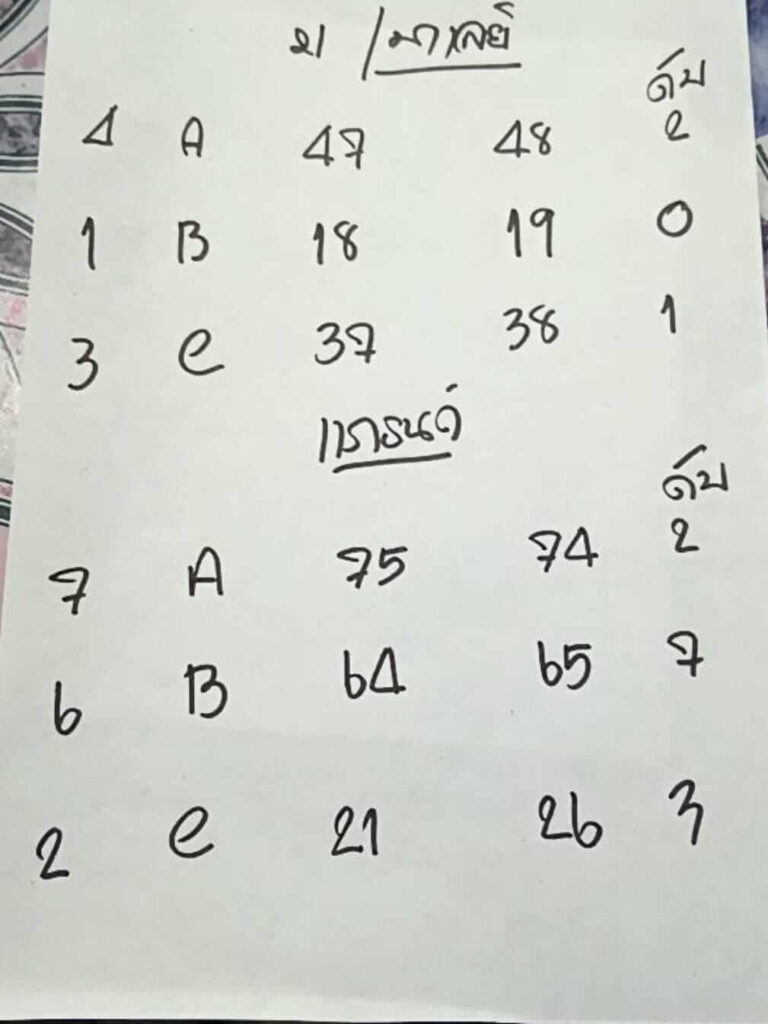 ฆ / มาเลย์
ดับ
4 A 47 48 2
1 B 18 19 0
3 C 37 38 1
แกรนด์
ดับ
7 A 75 74 2
6 B 64 65 7
2 C 21 26 3